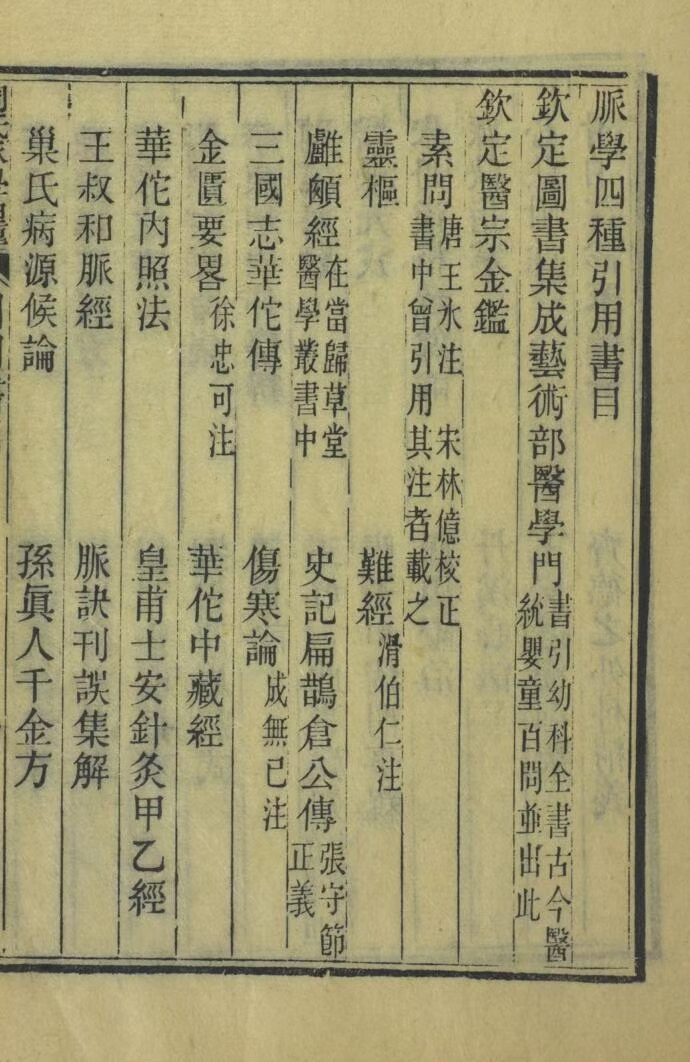 脈學四種引用書目
欽定圖書集成藝術部醫學門書引幼科全書古今醫統嬰童百問並出此
欽定醫宗金鑑
素問唐王氷注　宋林億校正書中曾引用其注者載之
靈樞　難經滑伯仁注
顱顖經在當歸草堂醫學叢書中　史記扁鵲倉公傳張守節正義
三國志華佗傳　傷寒論成無已注
金匱要畧徐忠可注　華佗中藏經
華佗內照法　皇甫士安針灸甲乙經
王叔和脈經　脈訣刊誤集解
巢氏病源候論　孫眞人千金方